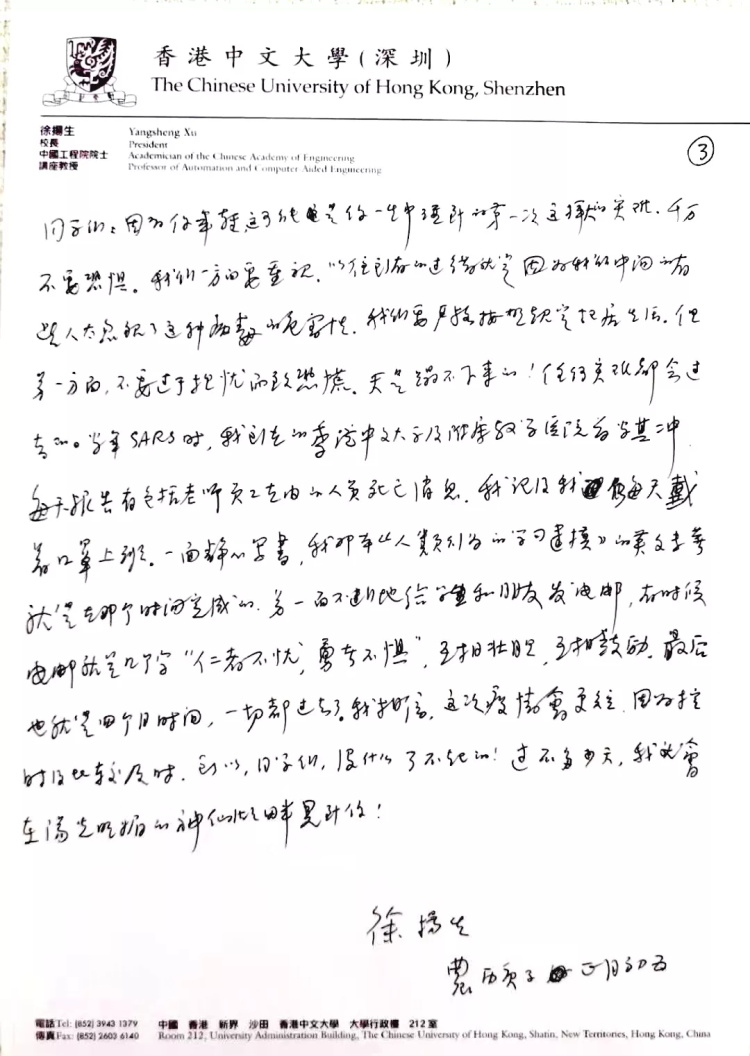 香港中文大學(深圳)
The Chinese University of Hong Kong, Shenzhen
徐揚生 Yangsheng Xu
校長 President
中國工程院院士 Academician of the Chinese Academy of Engineering
講座教授 Professor of Automation and Computer Aided Engineering
③
同学们：因为你年轻，这可能是你一生中碰到的第一次这样大的灾难，千万
不要恐惧。我们一方面要重视，以往到存的过错就是因为我们中间的有
些人太忽视了这种病毒的危害性。我们要严格按照规定起居生活。但
另一方面，不要过于担忧而致恐慌。天是塌不下来的！任何灾难都会过
去的。当年SARS时，我所在的香港中文大学及附属教学医院首当其冲
每天报告有包括老师员工在内的人员死亡消息。我记得我每天戴
着口罩上班。一面静心写书，我那本《人类行为的学习建模》的英文专著
就是在那个时间完成的。另一面不断地给学生和朋友发电邮，有时候
电邮就是几个字“仁者不忧，勇者不惧”，互相壮胆，互相鼓励。最后
也就是四个月时间，一切都过去了。我相信，这次疫情會更短，因为控
时得比较及时。所以，同学们，没什么了不起的！过不多少天，我就會
在陽光明媚的神仙湖畔見到你！
徐揚生
農历庚子正月初五
電話Tel: (852) 3943 1379 中國 香港 新界 沙田 香港中文大學 大學行政樓 212室
傳真Fax: (852) 2603 6140 Room 212, University Administration Building, The Chinese University of Hong Kong, Shatin, New Territories, Hong Kong, China